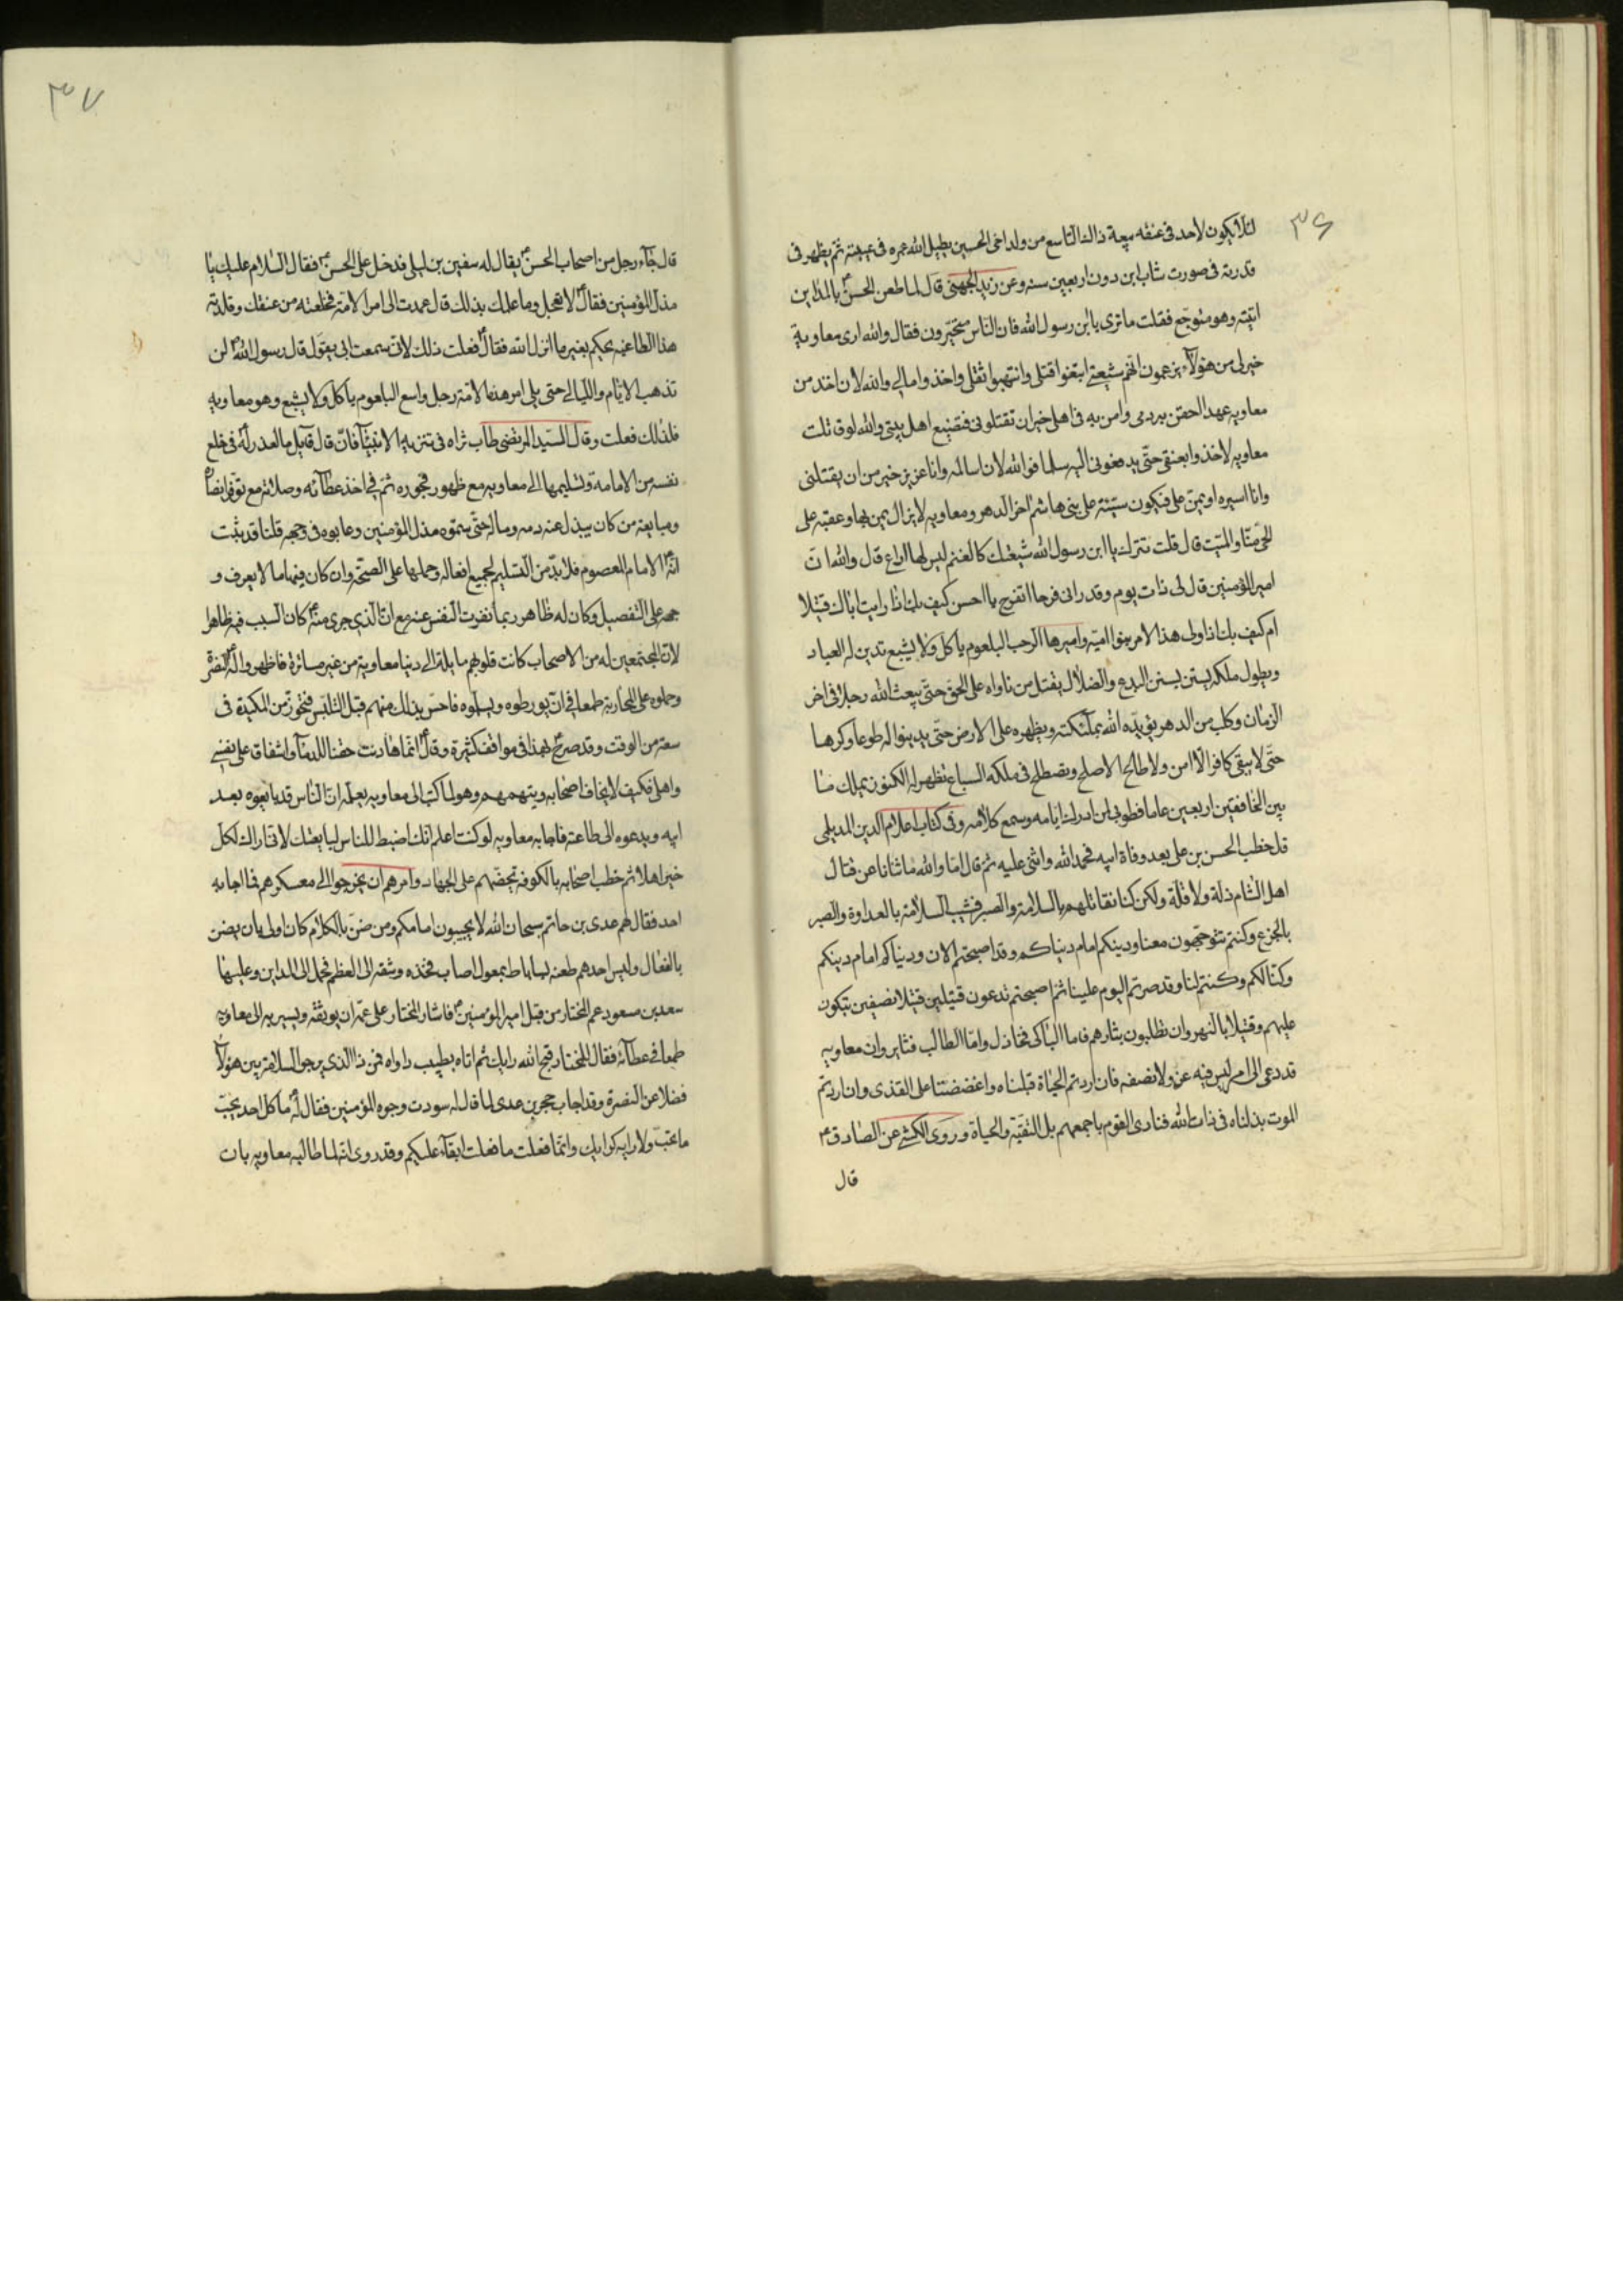 ٣٦
لئلا يكون لاحد فى عنقه بيعة ذالك التاسع من ولد اخى الحسين يطيل الله عمره فى غيبته ثم يظهر فى
قدرته فى صورت شاب ابن دون اربعين سنه وعن زيد الجهنى قال لما طعن الحسن ع بالمداين
اتيته وهو متوجع فقلت ما ترى يا ابن رسول الله فان الناس متحيرون فقال والله ارى معاوية
خير لى من هؤلاء يزعمون انهم شيعتى ابتغوا قتلى وانتهبوا ثقلى واخذوا مالى والله لان اخذ من
معاويه عهدا احقن به دمى وامن به فى اهلى خير ان تقتلونى فتضيع اهل بيتى والله لو قاتلت
معاويه لاخذوا بعنقى حتى يدفعونى اليه سلما فوالله لان اسالمه وانا عزيز خير من ان يقتلنى
وانا اسيره او يمن على فيكون سبئة على بنى هاشم اخر الدهر ومعاويه لا يزال يمن بها وعقبه على
الحى منا والميت قال قلت تترك يا ابن رسول الله شيعتك كالغنم ليس لها راع قال والله ان
امير المؤمنين قال لى ذات يوم وقد رانى فرحا اتفرح يا حسن كيف بك اذا رايت اباك قتيلا
ام كيف بك اذا ولى هذا الامر بنوا اميه واميرها الرحب البلعوم ياكل ولا يشبع تدين له العباد
ويطول ملكه يستن بسنن البدع والضلال يقتل من ناواه على الحق حتى يبعث الله رجلا فى اخر
الزمان وكلب من الدهر يؤيده الله بملئكته ويظهره على الارض حتى يدينوا له طوعا وكرها
حتى لا يبقى كافر الا امن ولا طالح الا صلح وتصطلح فى ملكه السباع تظهر له الكنوز يملك ما
بين الخافقين اربعين عاما فطوبى لمن ادرك ايامه وسمع كلامه وفى كتاب اعلام الدين للديلمى
قال خطب الحسن بن على بعد وفاة ابيه فحمد الله واثنى عليه ثم قال اما والله ما ثنانا عن قتال
اهل الشام ذلة ولا قلة ولكن كنا نقاتلهم بالسلامة والصبر فشيب السلامة بالعداوة والصبر
بالجزع وكنتم تتوجهون معنا ودينكم امام دنياكم وقد اصبحتم الان ودنياكم امام دينكم
وكنا لكم وكنتم لنا وقد صرتم اليوم علينا ثم اصبحتم تدعون قتيلين قتيلا بصفين تبكون
عليهم وقتيلا بالنهروان تطلبون بثارهم فاما الباكى فخاذل واما الطالب فثاير وان معاويه
قد دعى الى امر ليس فيه عز ولا نصفه فان اردتم الحياة قبلناه واغضضنا على القذى وان اردتم
الموت بذلناه فى ذات الله فنادى القوم باجمعهم بل التقية والحياة وروى الكشى عن الصادق ع
قال
٣٧
قال جاء رجل من اصحاب الحسن ع يقال له سفين بن ليلى فدخل على الحسن ع فقال السلام عليك يا
مذل المؤمنين فقال ع لا تعجل وما علمك بذلك قال عمدت الى امر الامة فخلعته من عنقك وقلدته
هذا الطاغيه يحكم بغير ما انزل الله فقال ع فعلت ذلك لانى سمعت ابى يقول قال رسول الله ص لن
تذهب الايام والليالى حتى يلى امر هذه الامة رجل واسع البلعوم ياكل ولا يشبع وهو معاويه
فلذلك فعلت وقال السيد المرتضى طاب ثراه فى تنزيه الانبياء فان قال قايل ما العذر له فى خلع
نفسه من الامامة وتسليمها الى معاويه مع ظهور فجوره ثم فى اخذ عطائه وصلاته مع توفر انصاره
ومبايعة من كان يبذل عنه دمه وماله حتى سموه مذل المؤمنين وعابوه فى وجهه قلنا قد ثبت
انه الامام المعصوم فلا بد من التسليم لجميع افعاله وحملها على الصحة وان كان فيها ما لا يعرف و
جهه على التفصيل وكان له ظاهر ربما نفرت النفس عنه مع ان الذى جرى منه ع كان السبب فيه ظاهرا
لان المجتمعين له من الاصحاب كانت قلوبهم مايلة الى دنيا معاوية من غير مساترة فاظهروا له ع النصرة
وحملوه على المحاربة طمعا فى ان يورطوه ويسلموه فاحس بذلك منهم قبل التلبس فتحوز من المكيدة فى
سعة من الوقت وقد صرح ع بهذا فى مواقف كثيرة وقال ع انما هادنت حقنا للدماء واشفاق على نفسى
واهلى فكيف لا يخاف اصحابه ويتهمهم وهو لما كتب الى معاويه يعلمه ان الناس قد بايعوه بعد
ابيه ويدعوه الى طاعته فاجابه معاويه لو كنت اعلم انك اضبط للناس لبايعتك لانى اراك لكل
خير اهلا ثم خطب اصحابه بالكوفه تحضهم على الجهاد وامرهم ان يخرجوا الى معسكرهم فما اجابه
احد فقال لهم عدى بن حاتم سبحان الله لا تجيبون امامكم ومن ضن بالكلام كان اولى بان يضن
بالفعال وليس احدهم طعنه بساباط بمعول اصاب فخذه وشقه الى العظم فحمل الى المداين وعليها
سعد بن مسعود عم المختار من قبل امير المؤمنين ع فاشار المختار على عمه ان يوثقه ويسير به الى معاويه
طمعا فى عطائه فقال للمختار قبح الله رايك ثم اتاه بطبيب داواه فمن ذا الذى يرجو السلامة بين هؤلاء
فضلا عن النصرة وقد اجاب حجر بن عدى لما قال له سودت وجوه المؤمنين فقال له ع ما كل احد يحب
ما تحب ولا رايه كرايك وانما فعلت ما فعلت ابقاء عليكم وقد روى انه لما طالبه معاويه بان